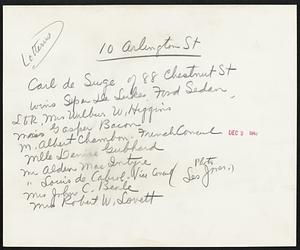 Letters
10 Arlington St
Carl de Suze of 88 Chestnut St
wins Sepa De Luxe Ford Sedan,
L to R Mrs Wilbur W. Higgins
Gasper Bacon
M. Albert Chambon. French Consul
DEC 2 1940
Mlle Denise Gubbard
Mr Alden Mac Intyre
" Louis de Cabrol, Vice Consul (Photo
Les Jones.)
Mrs John C. Beale
Mrs Robert W. Lovett